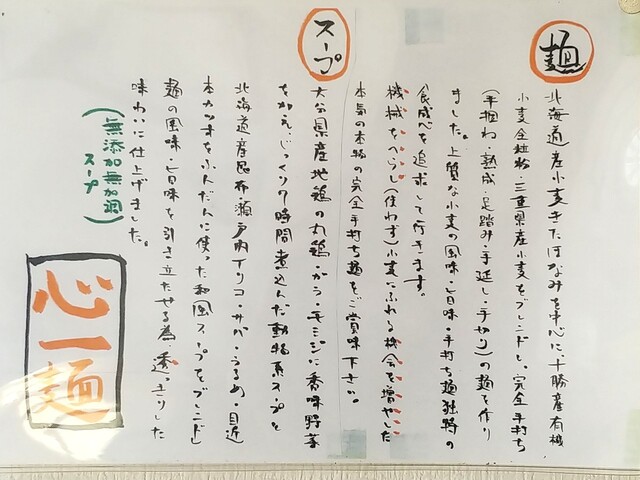 麺
北海道産小麦きたほなみを中心に、十勝産有機
小麦全粒粉・三重県産小麦をブレンドし、完全手打ち
(手捏ね・熟成・足踏み・手延し・手切り)の麺を作り
ました。上質な小麦の風味・旨味・手打ち麺独特の
食感を追求して行きます。
機械をへらし(使わず)小麦にふれる機会を増やした
本気の本物の完全手打ち麺をご賞味下さい。
スープ
大分県産地鶏の丸鶏・がら・モミジに香味野菜
をかえ、じっくり7時間煮込んだ動物系スープと
北海道産昆布・瀬戸内イリコ・サバ・うるめ・目近
本カツオをふんだんに使った和風スープをブレンドし
麺の風味・旨味を引き立たせる為、透っきりした
味わいに仕上げました。
(無添加無加調
スープ)
心一麺